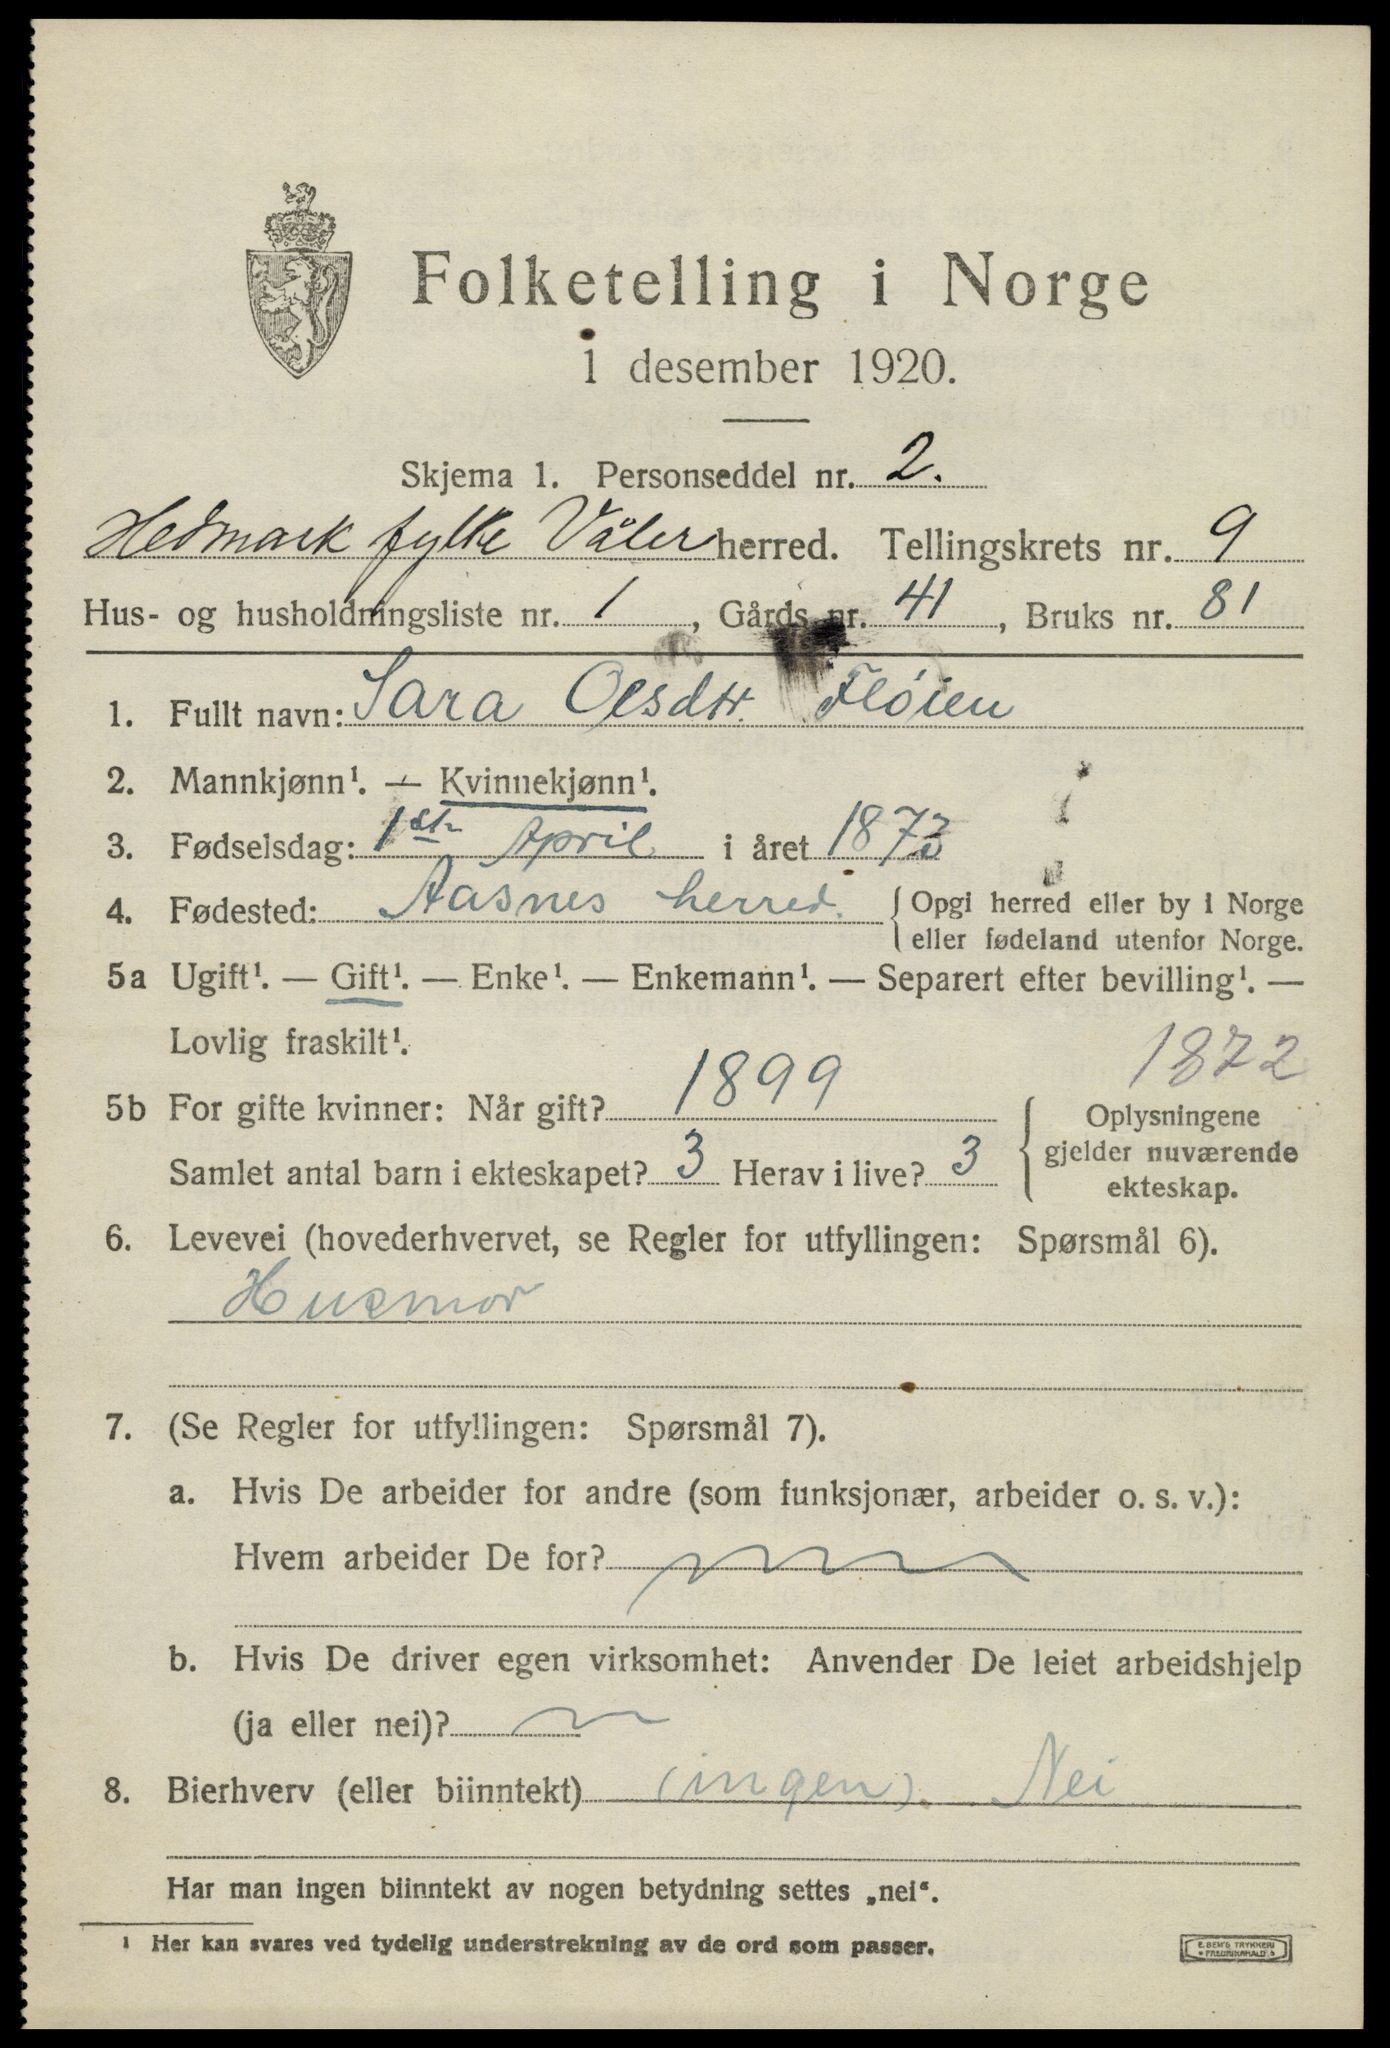 Folketelling i Norge
1 desember 1920.
Skjema 1. Personseddel nr. 2.
Hedmark fylke Våler herred. Tellingskrets nr. 9
Hus- og husholdningsliste nr. 1, Gårds nr. 41, Bruks nr. 81
1. Fullt navn: Sara Olsdtr. Fløien
2. Mannkjønn¹. — Kvinnekjønn¹.
3. Fødselsdag: 1ste April i året 1873
4. Fødested: Aasnes herred. { Opgi herred eller by i Norge
eller fødeland utenfor Norge.
5a Ugift¹. — Gift¹. — Enke¹. — Enkemann¹. — Separert efter bevilling¹. —
Lovlig fraskilt¹.
1872
5b For gifte kvinner: Når gift? 1899
Samlet antal barn i ekteskapet? 3 Herav i live? 3
{ Oplysningene
gjelder nuværende
ekteskap.
6. Levevei (hovederhvervet, se Regler for utfyllingen: Spørsmål 6).
Husmor
7. (Se Regler for utfyllingen: Spørsmål 7).
a. Hvis De arbeider for andre (som funksjonær, arbeider o. s. v.):
Hvem arbeider De for?
b. Hvis De driver egen virksomhet: Anvender De leiet arbeidshjelp
(ja eller nei)?
8. Bierhverv (eller biinntekt) (ingen). Nei
Har man ingen biinntekt av nogen betydning settes „nei“.
¹ Her kan svares ved tydelig understrekning av de ord som passer.
E. SEM'S TRYKKERI
FREDRIKSHALD